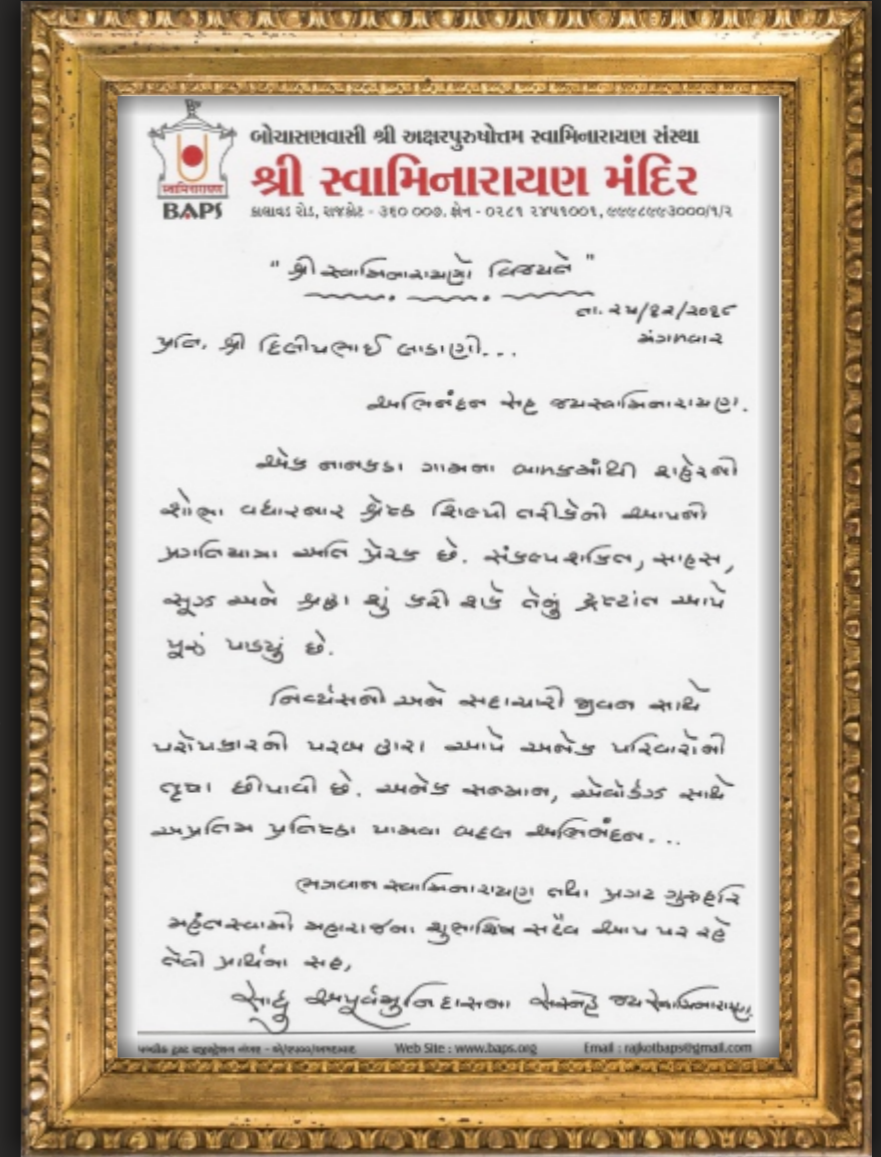 બોચાસણવાસી શ્રી અક્ષરપુરુષોત્તમ સ્વામિનારાયણ સંસ્થા
શ્રી સ્વામિનારાયણ મંદિર
સ્વામિનારાયણ
BAPS
કાલાવડ રોડ, રાજકોટ - ૩૬૦ ૦૦૭. ફોન - ૦૨૮૧ ૨૪૫૧૦૦૧, ૯૯૯૮૯૯૩000/૧/૨
" શ્રી સ્વામિનારાયણો વિજયતે "
તા. ૨૫/૧૨/૨૦૧૮
મંગળવાર
પ્રતિ, શ્રી દિલીપભાઈ લાડાણી...
અભિનંદન સહ જયસ્વામિનારાયણ.
એક નાનકડા ગામના બાળકમાંથી શહેરની
શોભા વધારનાર શ્રેષ્ઠ શિલ્પી તરીકેની આપની
પ્રગતિયાત્રા અતિ પ્રેરક છે. સંકલ્પશક્તિ, સાહસ,
સૂઝ અને શ્રદ્ધા શું કરી શકે તેનું દ્રષ્ટાંત આપે
પૂરું પાડ્યું છે.
નિર્વ્યસની અને સદાચારી જીવન સાથે
પરોપકારની પરબ દ્વારા આપે અનેક પરિવારોની
તૃષા છીપાવી છે. અનેક સન્માન, એવોર્ડઝ સાથે
અપ્રતિમ પ્રતિષ્ઠા પામવા બદલ અભિનંદન...
ભગવાન સ્વામિનારાયણ તથા પ્રગટ ગુરુહરિ
મહંતસ્વામી મહારાજના શુભાશિષ સદૈવ આપ પર રહે
તેવી પ્રાર્થના સહ,
સાધુ અપૂર્વમુનિદાસના સસ્નેહ જય સ્વામિનારાયણ.
પબ્લીક ટ્રસ્ટ રજીસ્ટ્રેશન નંબર -
Web Site : www.baps.org
Email : rajkotbaps@gmail.com